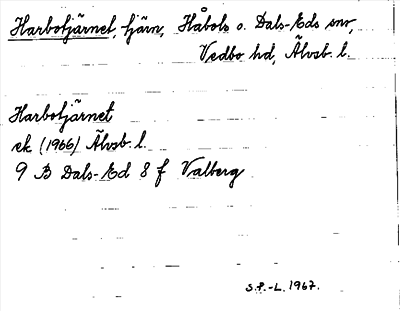 Harbotjärnet, tjärn, Håbols o. Dals-Eds snr,
Vedbo hd, Älvsb. l.
Harbotjärnet
ek (1966) Älvsb. l.
9 B Dals-Ed 8 f Valberg
S.P.-L. 1967.